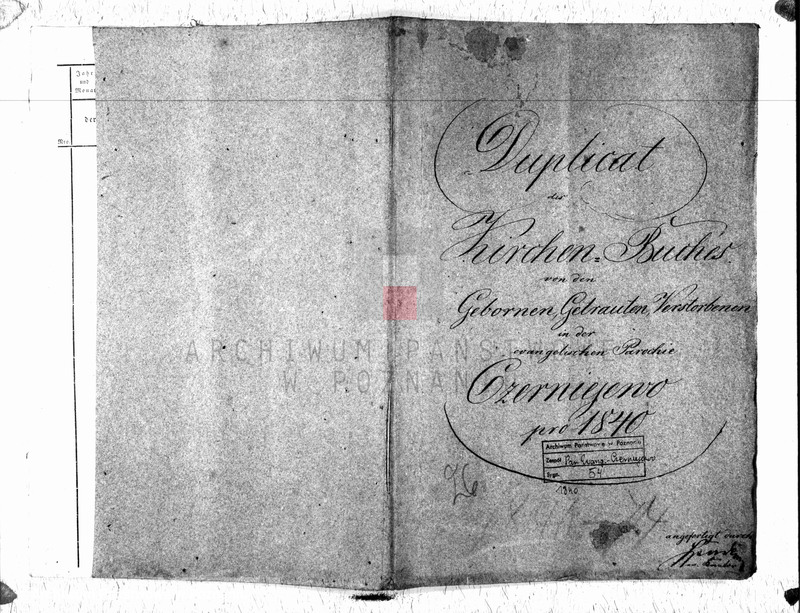 Jahr
und
Monat
der
Nro.
Duplicat
des
Kirchen=Buches
von den
Gebornen, Getrauten, Verstorbenen
in der
evangelischen Parochie
Czerniejewo
pro 1840
Archiwum Państwowe w Poznaniu
Zespół Par. Ewang.-Czerniejewo
Sygn. 54
1840
26
angefertigt durch
ARCHIWUM PAŃSTWOWE
W POZNANIU